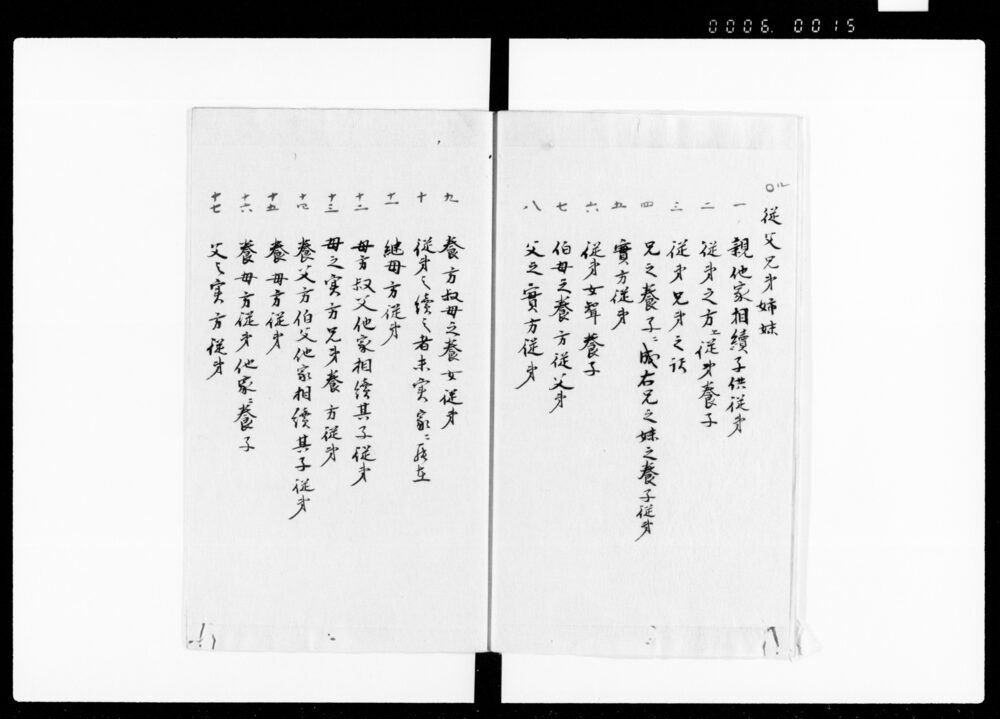 0006. 0015
従父兄弟姉妹
一 親他家相續子供従弟
二 従弟之方ニ従弟養子
三 従弟兄弟之訳
四 兄之養子ニ成右兄之妹之養子従弟
五 實方従弟
六 従弟女聟養子
七 伯母之養方従父弟
八 父之實方従弟
九 養方叔母之養女従弟
十 従弟之續之者未実家ニ居在
十一 継母方従弟
十二 母方叔父他家相続其子従弟
十三 母之実方兄弟養方従弟
十四 養父方伯父他家相續其子従弟
十五 養母方従弟
十六 養母方従弟他家ニ養子
十七 父之実方従弟